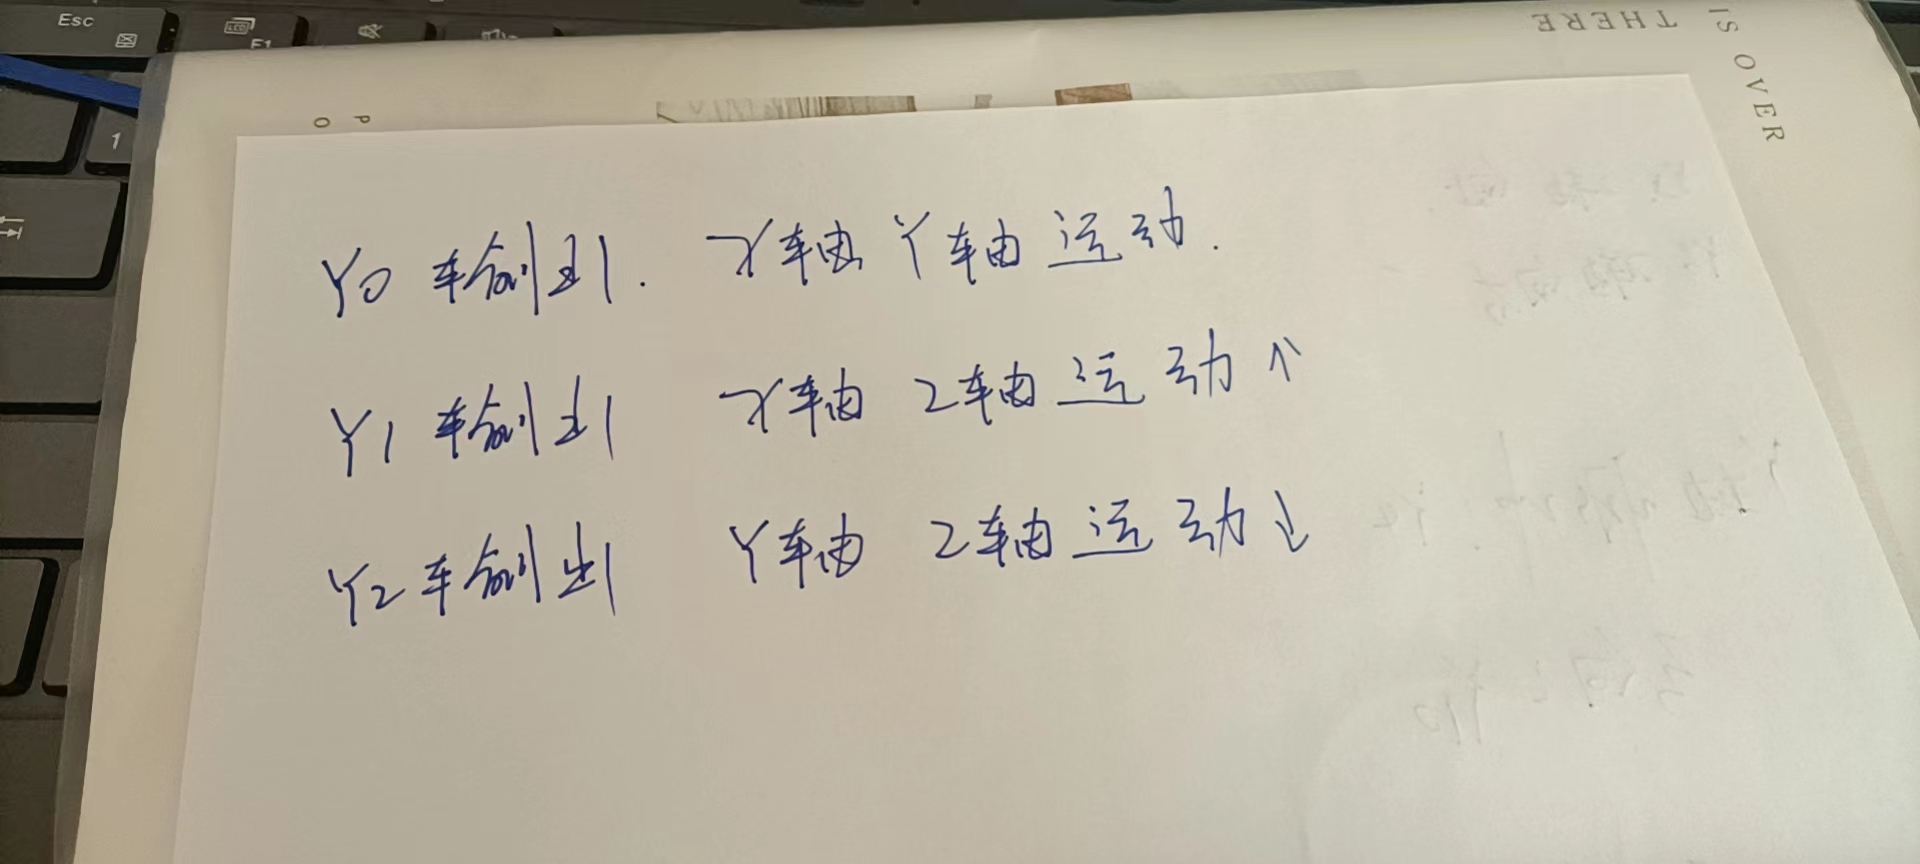 Esc
F1
1
THERE
IS OVER
P
O
Y0 输出. X轴 Y轴 运动.
Y1 输出 X轴 Z轴 运动 ↑
Y2 输出 Y轴 Z轴 运动 ↓